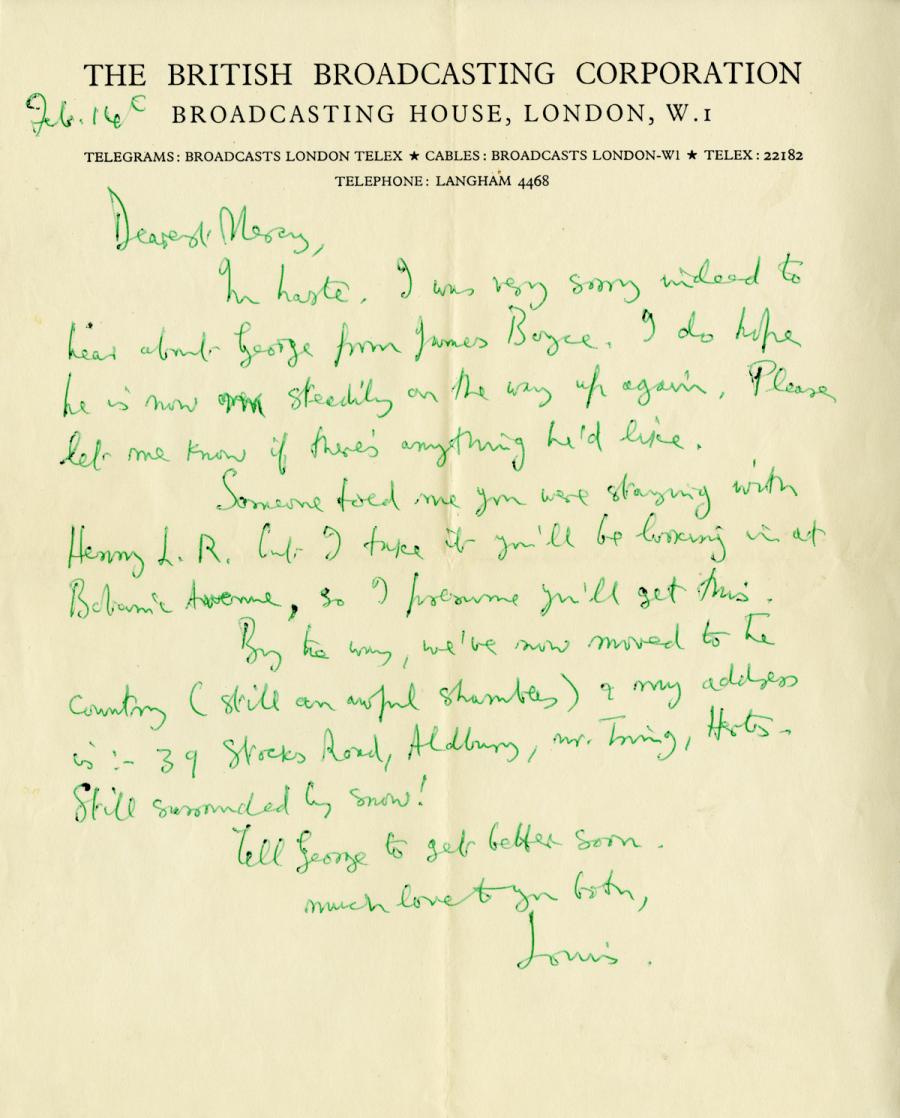 THE BRITISH BROADCASTING CORPORATION
Feb. 14
BROADCASTING HOUSE, LONDON, W.1
TELEGRAMS: BROADCASTS LONDON TELEX ★ CABLES: BROADCASTS LONDON-W1 ★ TELEX: 22182
TELEPHONE: LANGHAM 4468
Dearest Mercy,
In haste. I was very sorry indeed to
hear about George from James Boyce. I do hope
he is now steadily on the way up again. Please
let me know if there's anything he'd like.
Someone told me you were staying with
Henry L. R. but I take it you'll be looking in at
Botanic Avenue, so I presume you'll get this.
By the way, we've now moved to the
country (still an awful shambles) & my address
is :- 39 Stocks Road, Aldbury, nr. Tring, Herts.
Still surrounded by snow!
Tell George to get better soon.
much love to you both,
Louis.